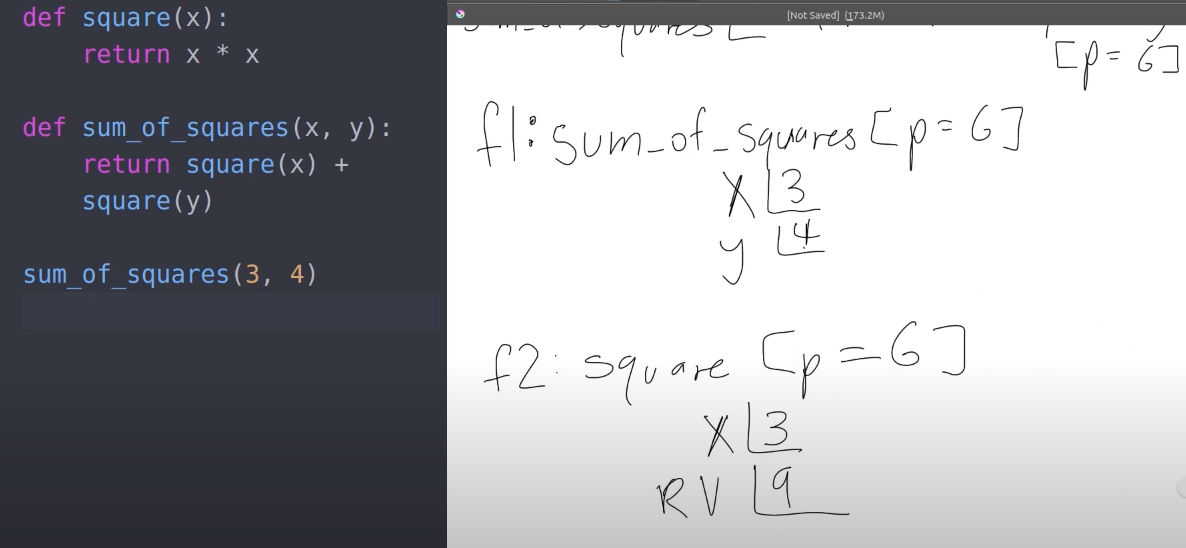 def square(x):
    return x * x
def sum_of_squares(x, y):
    return square(x) +
    square(y)
sum_of_squares(3, 4)
[Not Saved] (173.2M)
[p= 6]
f1: sum_of_squares [p= 6]
x 3
y 4
f2: square [p=6]
x 3
RV 9